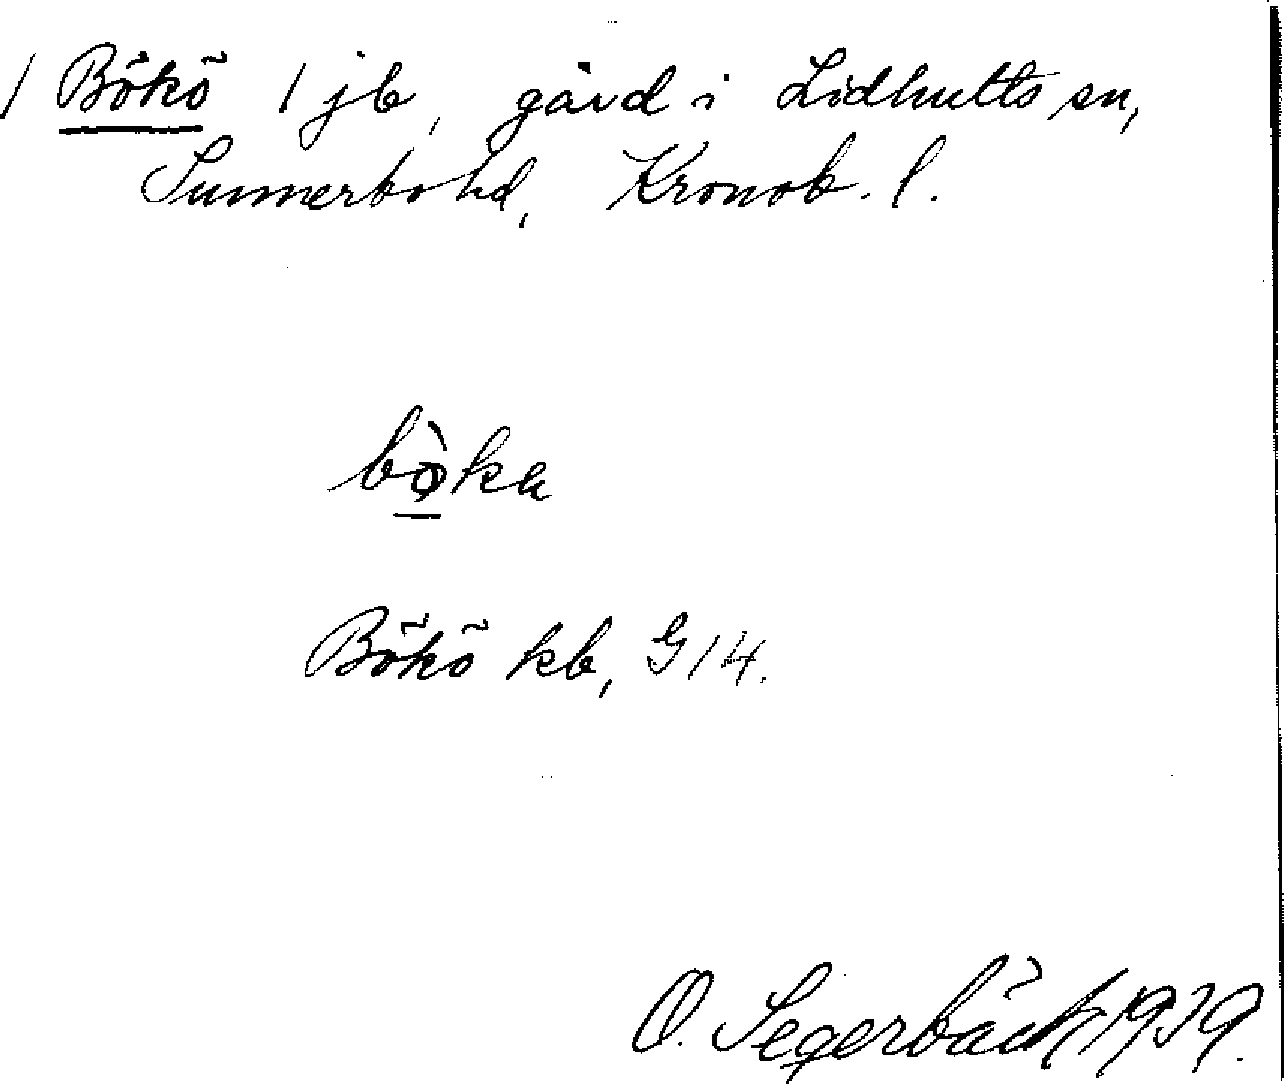 / Bökö 1 jb, gård i Lidhults sn,
Sunnerbo hd, Kronob. l.
bø̀ka
Bökö kb, G14.
O. Segerbäck 1939.